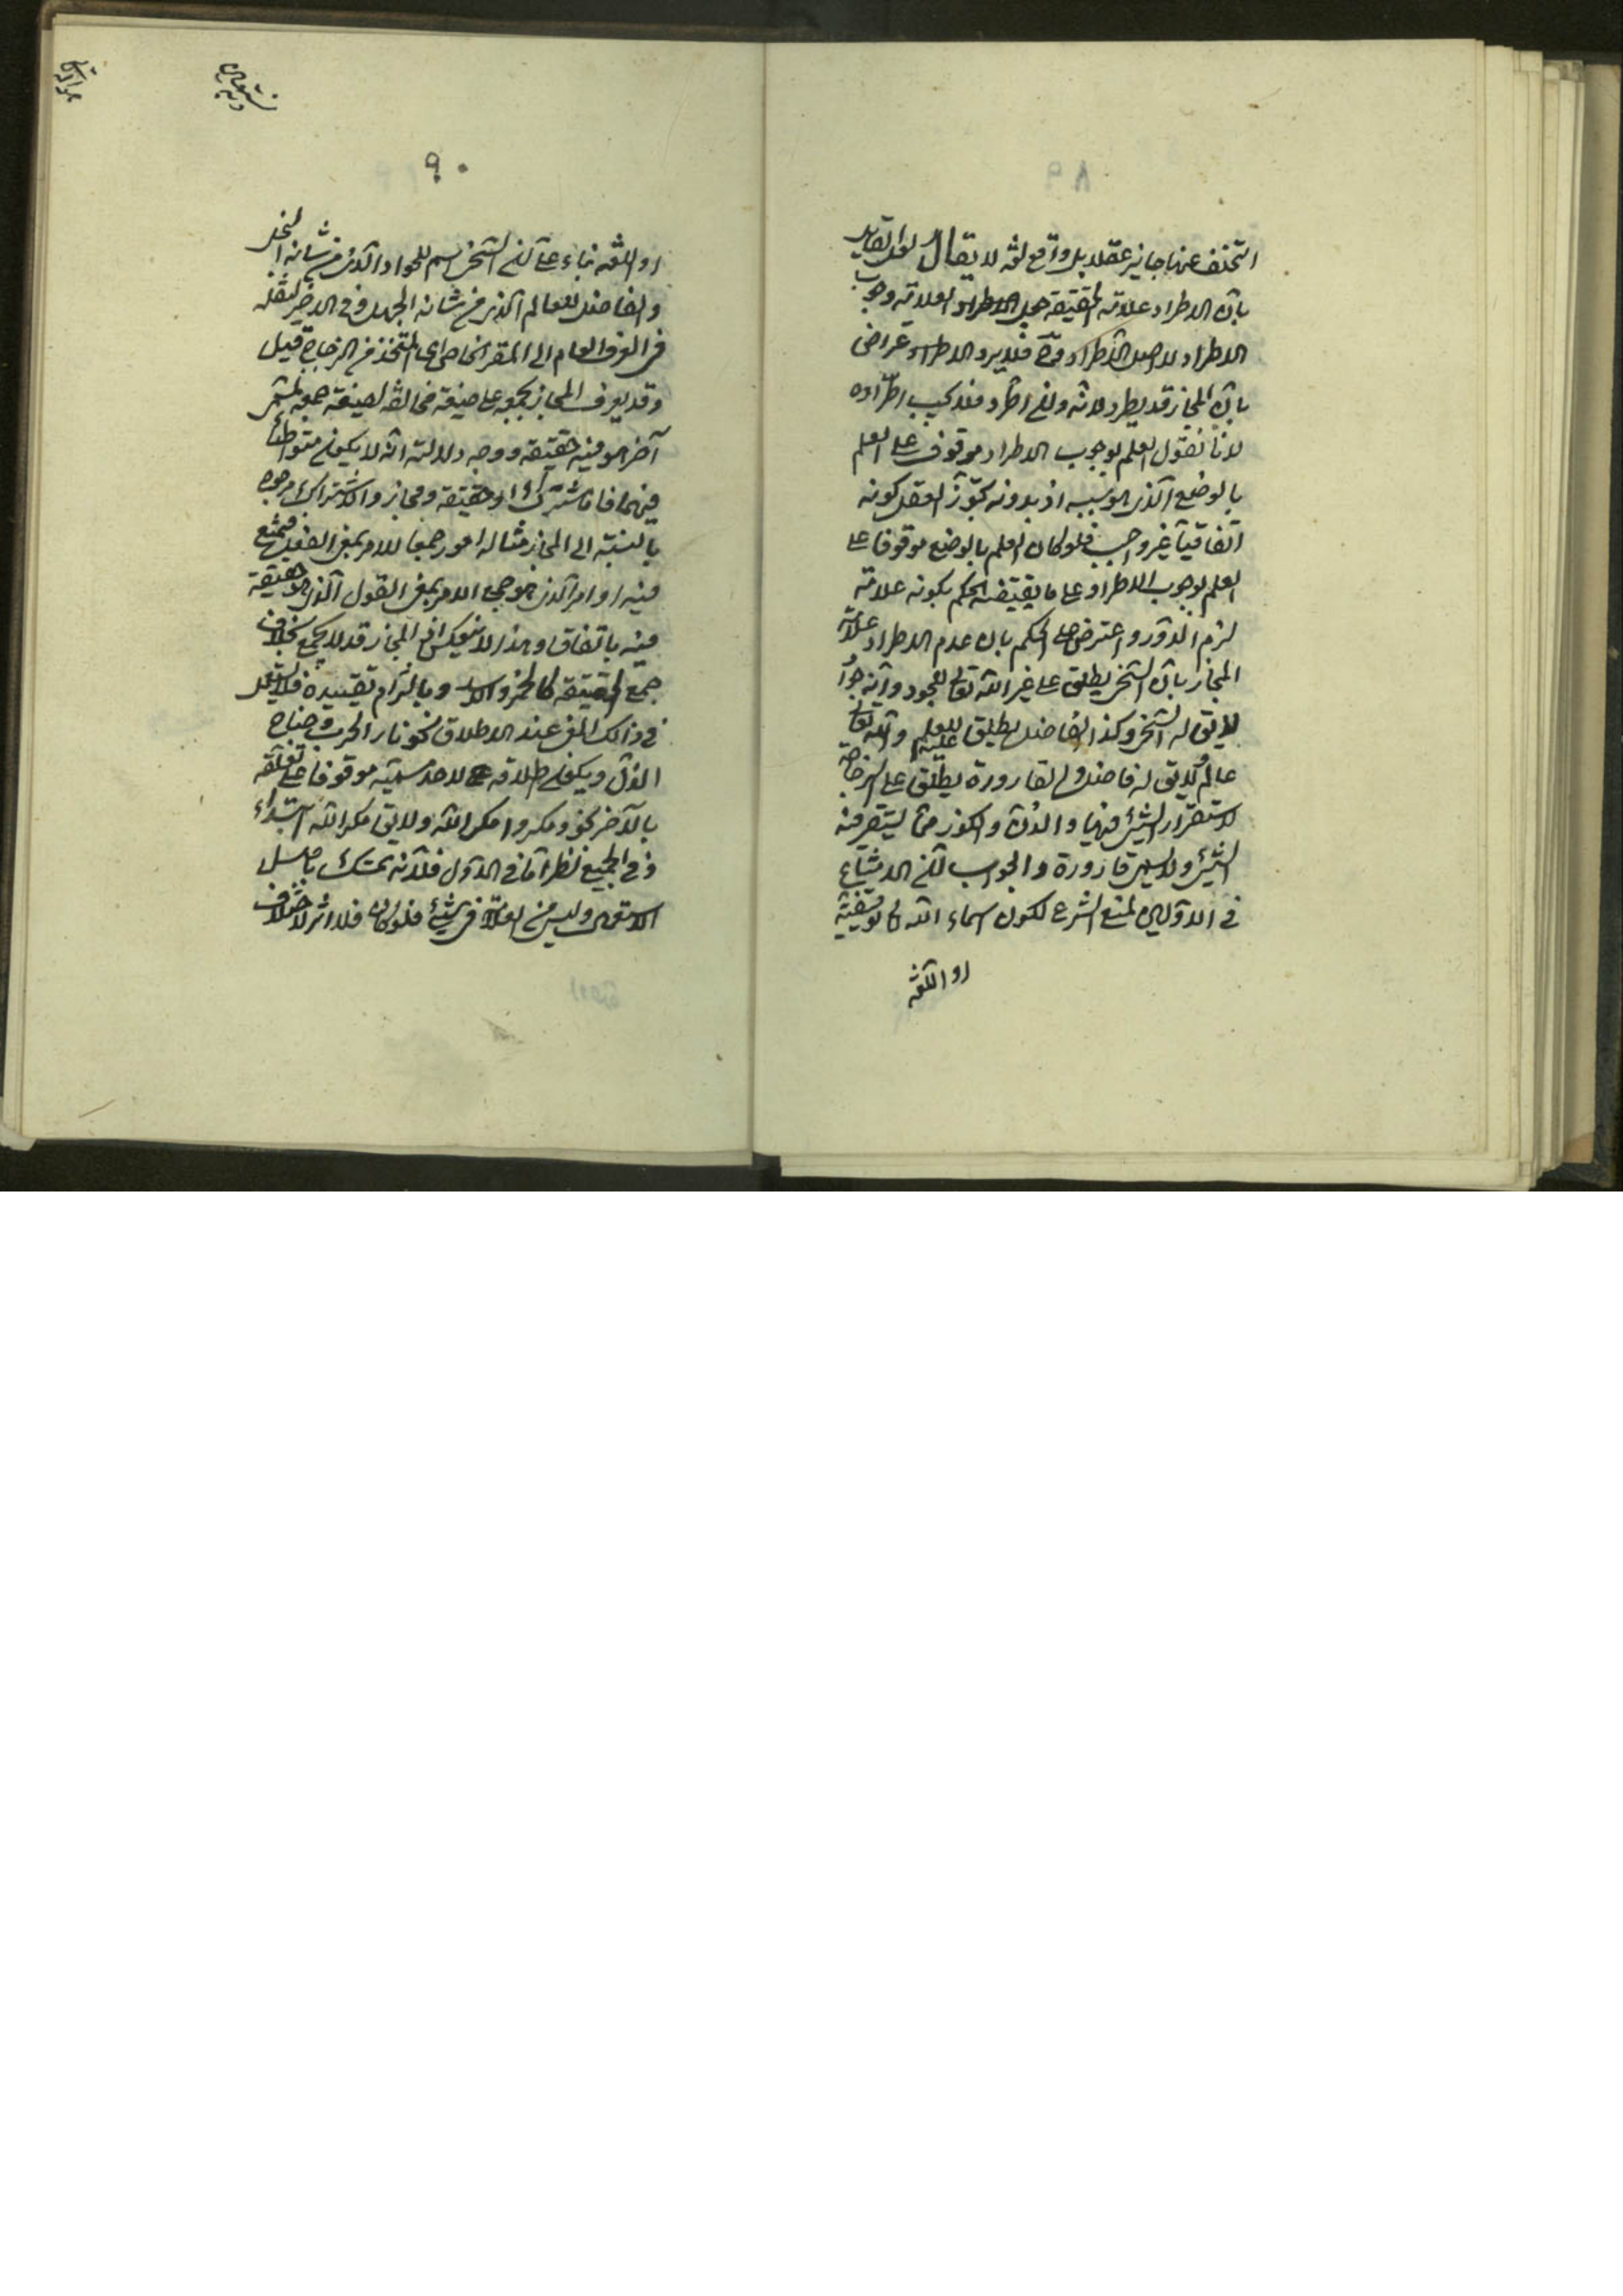 ٨٩
التخلف عنها جايز عقلا بل واقع لغة لا يقال لعل القايل
بان الاطراد علامة الحقيقة جعل العلامة وجوب
الاطراد لا اصل الاطراد فلا يرد الاعتراض
بان المجاز قد يطرد لانه وان اطرد فلا يجب اطراده
لانا نقول العلم بوجوب الاطراد موقوف على العلم
بالوضع الذى هو سببه اذ بدونه يجوّز العقل كونه
اتفاقيا غير واجب فلو كان العلم بالوضع موقوفا على
العلم بوجوب الاطراد على ما يقتضيه الحكم بكونه علامة
لزم الدور واعترض على الحكم بان عدم الاطراد علامة
المجاز بان السخى يطلق على غير الله تعالى للجود وانه جواد
لا يق له السخى وكذا الفاضل يطلق للعلم والله تعالى
عالم ولا يق له فاضل والقارورة يطلق على الزجاجة
لاستقرار الشئ فيها والدن والكوز مما يستقر فيه
الشئ ولا يسمى قارورة والجواب ان الامتناع
فى الاولين لمنع الشرع لكون اسماء الله تعالى توقيفية
او اللغة
٩٠
او اللغة بناء على ان السخى اسم للجواد الذى من شانه البخل
والفاضل للعالم الذى من شانه الجهل وفى الاخير لنقله
فى العرف العام الى المقر الخاص اى المتخذ من الزجاج قيل
وقد يعرف المجاز بجمعه على صيغة مخالفة لصيغة جمعه لمسمى
آخر هو فيه حقيقة ووجه دلالته انه لا يكون متواطئا
فيهما فاما مشترك او حقيقة ومجاز والاشتراك مرجوح
بالنسبة الى المجاز مثاله امور جمعا للامر بمعنى الفعل فيمتنع
فيه اوامر الذى هو جمع الامر بمعنى القول الذى هو حقيقة
فيه باتفاق وهذا لا ينعكس اذ المجاز قد لا يجمع بخلاف
جمع الحقيقة كالحمر والاسد وبالتزام تقييده فلا يستعمل
فى ذلك المعنى عند الاطلاق نحو نار الحرب وجناح
الذل ويكون اطلاقه لاحد مسمييه موقوفا على تعلقه
بالآخر نحو ومكروا ومكر الله ولا يق مكر الله ابتداء
وفى الجميع نظر اما فى الاول فلانه تمسك باصل
وليس من العلامة فى شئ فلو كان فلا اثر لاختلاف